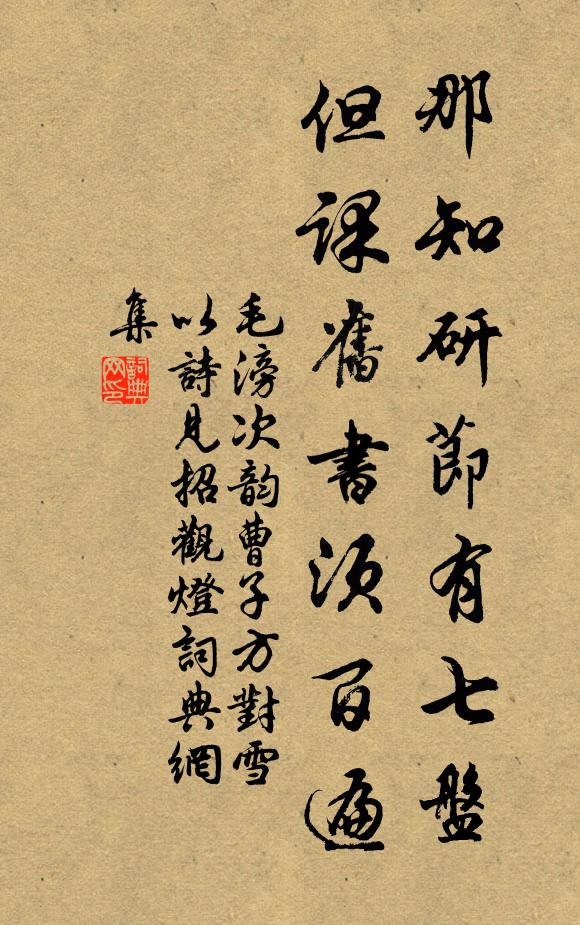 那知研節有七盤
但課舊書須百遍
毛滂次韵曹子方對雪
以詩見招觀燈詞典網
集
詞典
网印